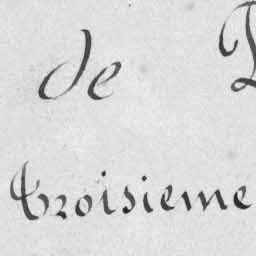 de
troisieme